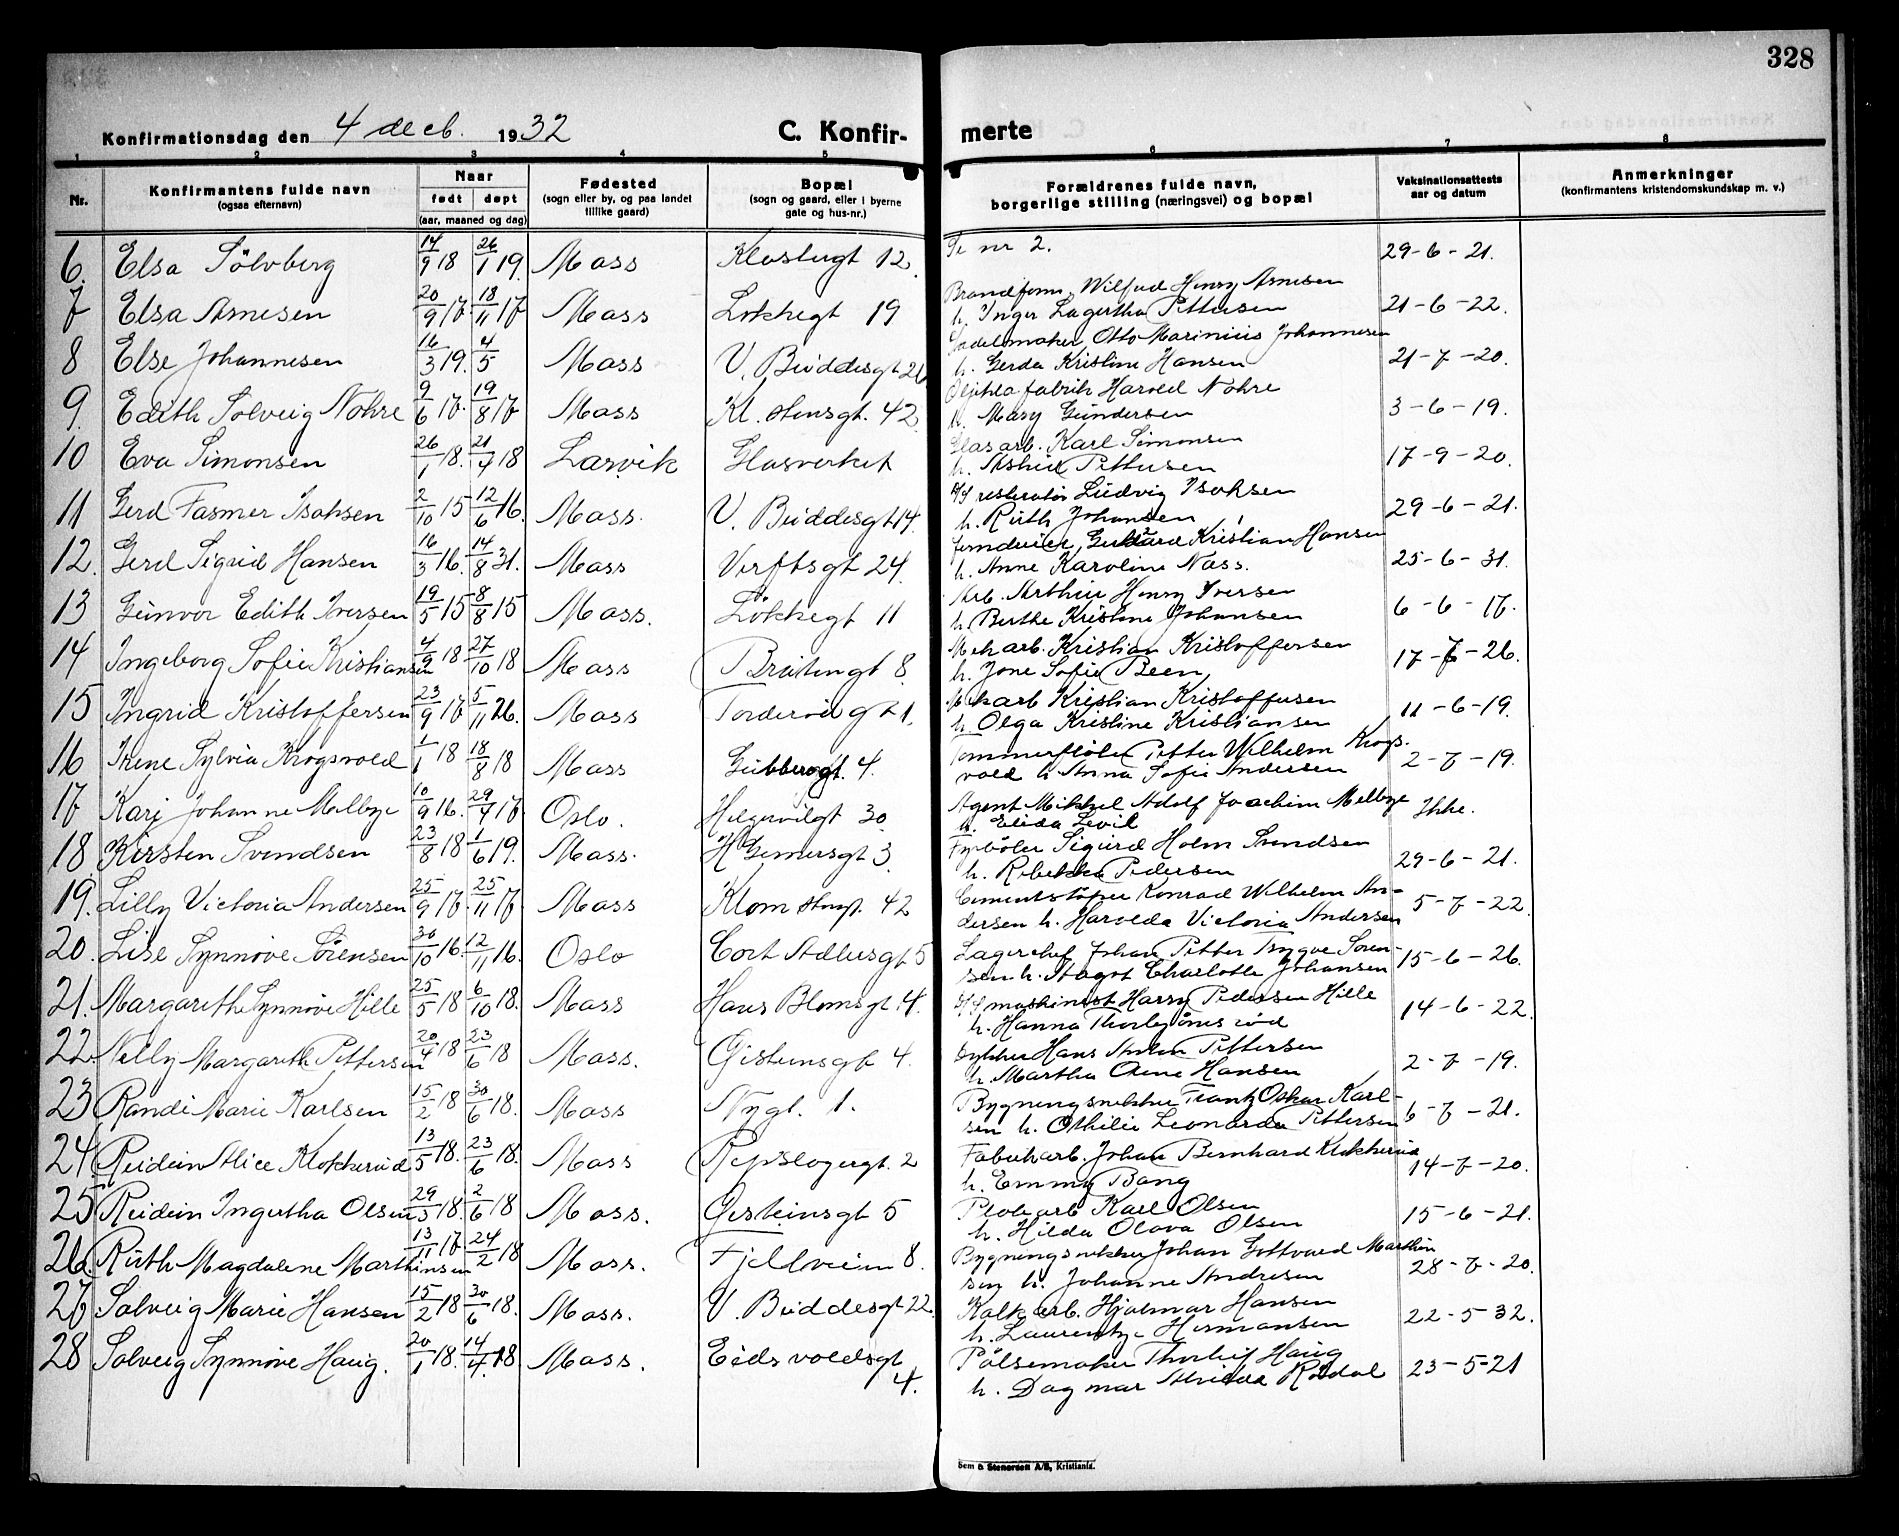 328
Konfirmationsdag den 4 decb. 1932
C. Konfirmerte
1 2 3 4 5 6 7 8
Nr.
Konfirmantens fulde navn
(ogsaa efternavn)
Naar
født døpt
(aar, maaned og dag)
Fødested
(sogn eller by, og paa landet
tillike gaard)
Bopæl
(sogn og gaard, eller i byerne
gate og hus-nr.)
Forældrenes fulde navn,
borgerlige stilling (næringsvei) og bopæl
Vaksinationsattests
aar og datum
Anmerkninger
(konfirmantens kristendomskundskap m. v.)
6. Elsa Sölvberg 14/9 18 26/1 19. Moss Klostergt 12. Se nr 2. 29-6-21.
7 Elsa Arnesen 20/9 17. 18/11 17 Moss Lökkegt 19 Brandform. Wilfred Henry Arnesen
h. Inger Lagertha Pettersen 21-6-22.
8 Else Johannesen 16/3 19. 4/5 Moss V. Buddesgt 26 Sadelmaker Otto Marinius Johannesen
h. Gerda Kristine Hansen 21-7-20.
9. Edith Solveig Nohre 9/6 17. 19/8 17 Moss Kl. stensgt. 42 Harold Nohre
h. Mary Gundersen 3-6-19.
10 Eva Simonsen 26/1 18. 21/4 18 Larvik Glasverket Glasarb. Karl Simonsen
h. Astrid Pettersen 17-9-20.
11 Gerd Fasmer Isaksen 2/10 15 12/6 16. Moss. V. Buddesgt 14. D/S restoratör Ludvig Isaksen
h. Ruth Johansen 29-6-21.
12. Gerd Sigrid Hansen 16/3 16. 14/8 31. Moss Verftsgt 24. Jerndreier Gerhard Kristian Hansen
h. Anne Karoline Næss. 25-6-31.
13 Gunvor Edith Iversen 19/5 15 8/8 15 Moss. Lökkegt 11 Arb. Arthur Henry Iversen
h. Berthe Kristine Johansen 6-6-17.
14 Ingeborg Sofie Kristiansen 4/9 18 27/10 18 Moss Britengt 8. Mekarb. Kristian Kristoffersen
h. Jone Sofie Been 17-7-26.
15 Ingrid Kristoffersen 23/9 17 5/11 26. Moss Tordenskj. gt 1. Mekarb Kristian Kristoffersen
h. Olga Kristine Kristiansen 11-6-19.
16 Irene Sylvia Krogsvold 1/1 18 18/8 18 Moss Gubberogt. 4. Tommerfløter Petter Wilhelm Krogs.
vold h Anna Sofie Andersen 2-7-19.
17 Kari Johanne Melbye 10/9 16. 29/4 17 Oslo. Helgerödgt 30 Agent Mikkel Adolf Joachim Melbye
h. Elida Levil Ikke.
18. Kirsten Svendsen 23/8 18 1/6 19. Moss. H Gernersgt 3. Fyrböter Sigurd Holm Svendsen
h. Rebekka Pedersen 29-6-21.
19. Lilly Victoria Andersen 25/9 17. 25/11 17. Moss Klom stensgt. 42 Cementstöper Konrad Wilhelm An-
dersen h. Harolda Victoria Andersen 5-7-22.
20. Lise Synnöve Sörensen 30/10 16. 12/11 16. Oslo Cort Adlersgt 5 Lagerchef Johan Petter Trygve Soren-
sen h. Aagot Charlotte Johansen 15-6-26.
21. Margarethe Synnöve Hille 25/5 18 6/10 18. Moss Hans Blomsgt. 4. D/S maskinist Harry Pedersen Hille
h. Hanna Thorbjörnsröd 14-6-22.
22. Nelly Margareth Pettersen 20/4 18 23/6 18 Moss. Gisteinsgt 4. Dykker Hans Anton Pettersen
h. Martha Oline Hansen 2-7-19.
23 Randi Marie Karlsen 15/2 18 30/6 18. Moss Nygt. 1. Bygningsnekker Frantz Oskar Karl-
sen h. Othilie Leonarda Pettersen 6-7-21.
24 Reidun Alice Klokkerud 13/5 18. 23/6 18. Moss Repslagergt. 2 Fabrikarb. Johan Bernhard Klokkerud
h. Emmy Bang 14-7-20.
25 Reidun Ingertha Olsen 29/3 18. 2/6 18 Moss. Gisteinsgt 5 Karl Olsen
h. Hilda Olava Olsen 15-6-21.
26. Ruth Magdalene Marthinsen 13/11 17. 24/2 18 Moss. Fjellveien 8. Bygningsnekker Johan Gottvard Marthin
sen h. Johanne Andresen 28-7-20.
27 Solveig Marie Hansen 15/2 18 30/6 18. Moss. V. Buddesgt 22. Kalkarb. Hjalmar Hansen
h. Laurentze Hermansen 22-5-32.
28 Solveig Synnöve Haug. 20/1 18. 14/4 18. Moss. Eidsvoldsgt
4. Pölsemaker Thorleif Haug
h. Dagmar Alvilda Rödal 23-5-21
Sem & Stenersen A/S, Kristiania.